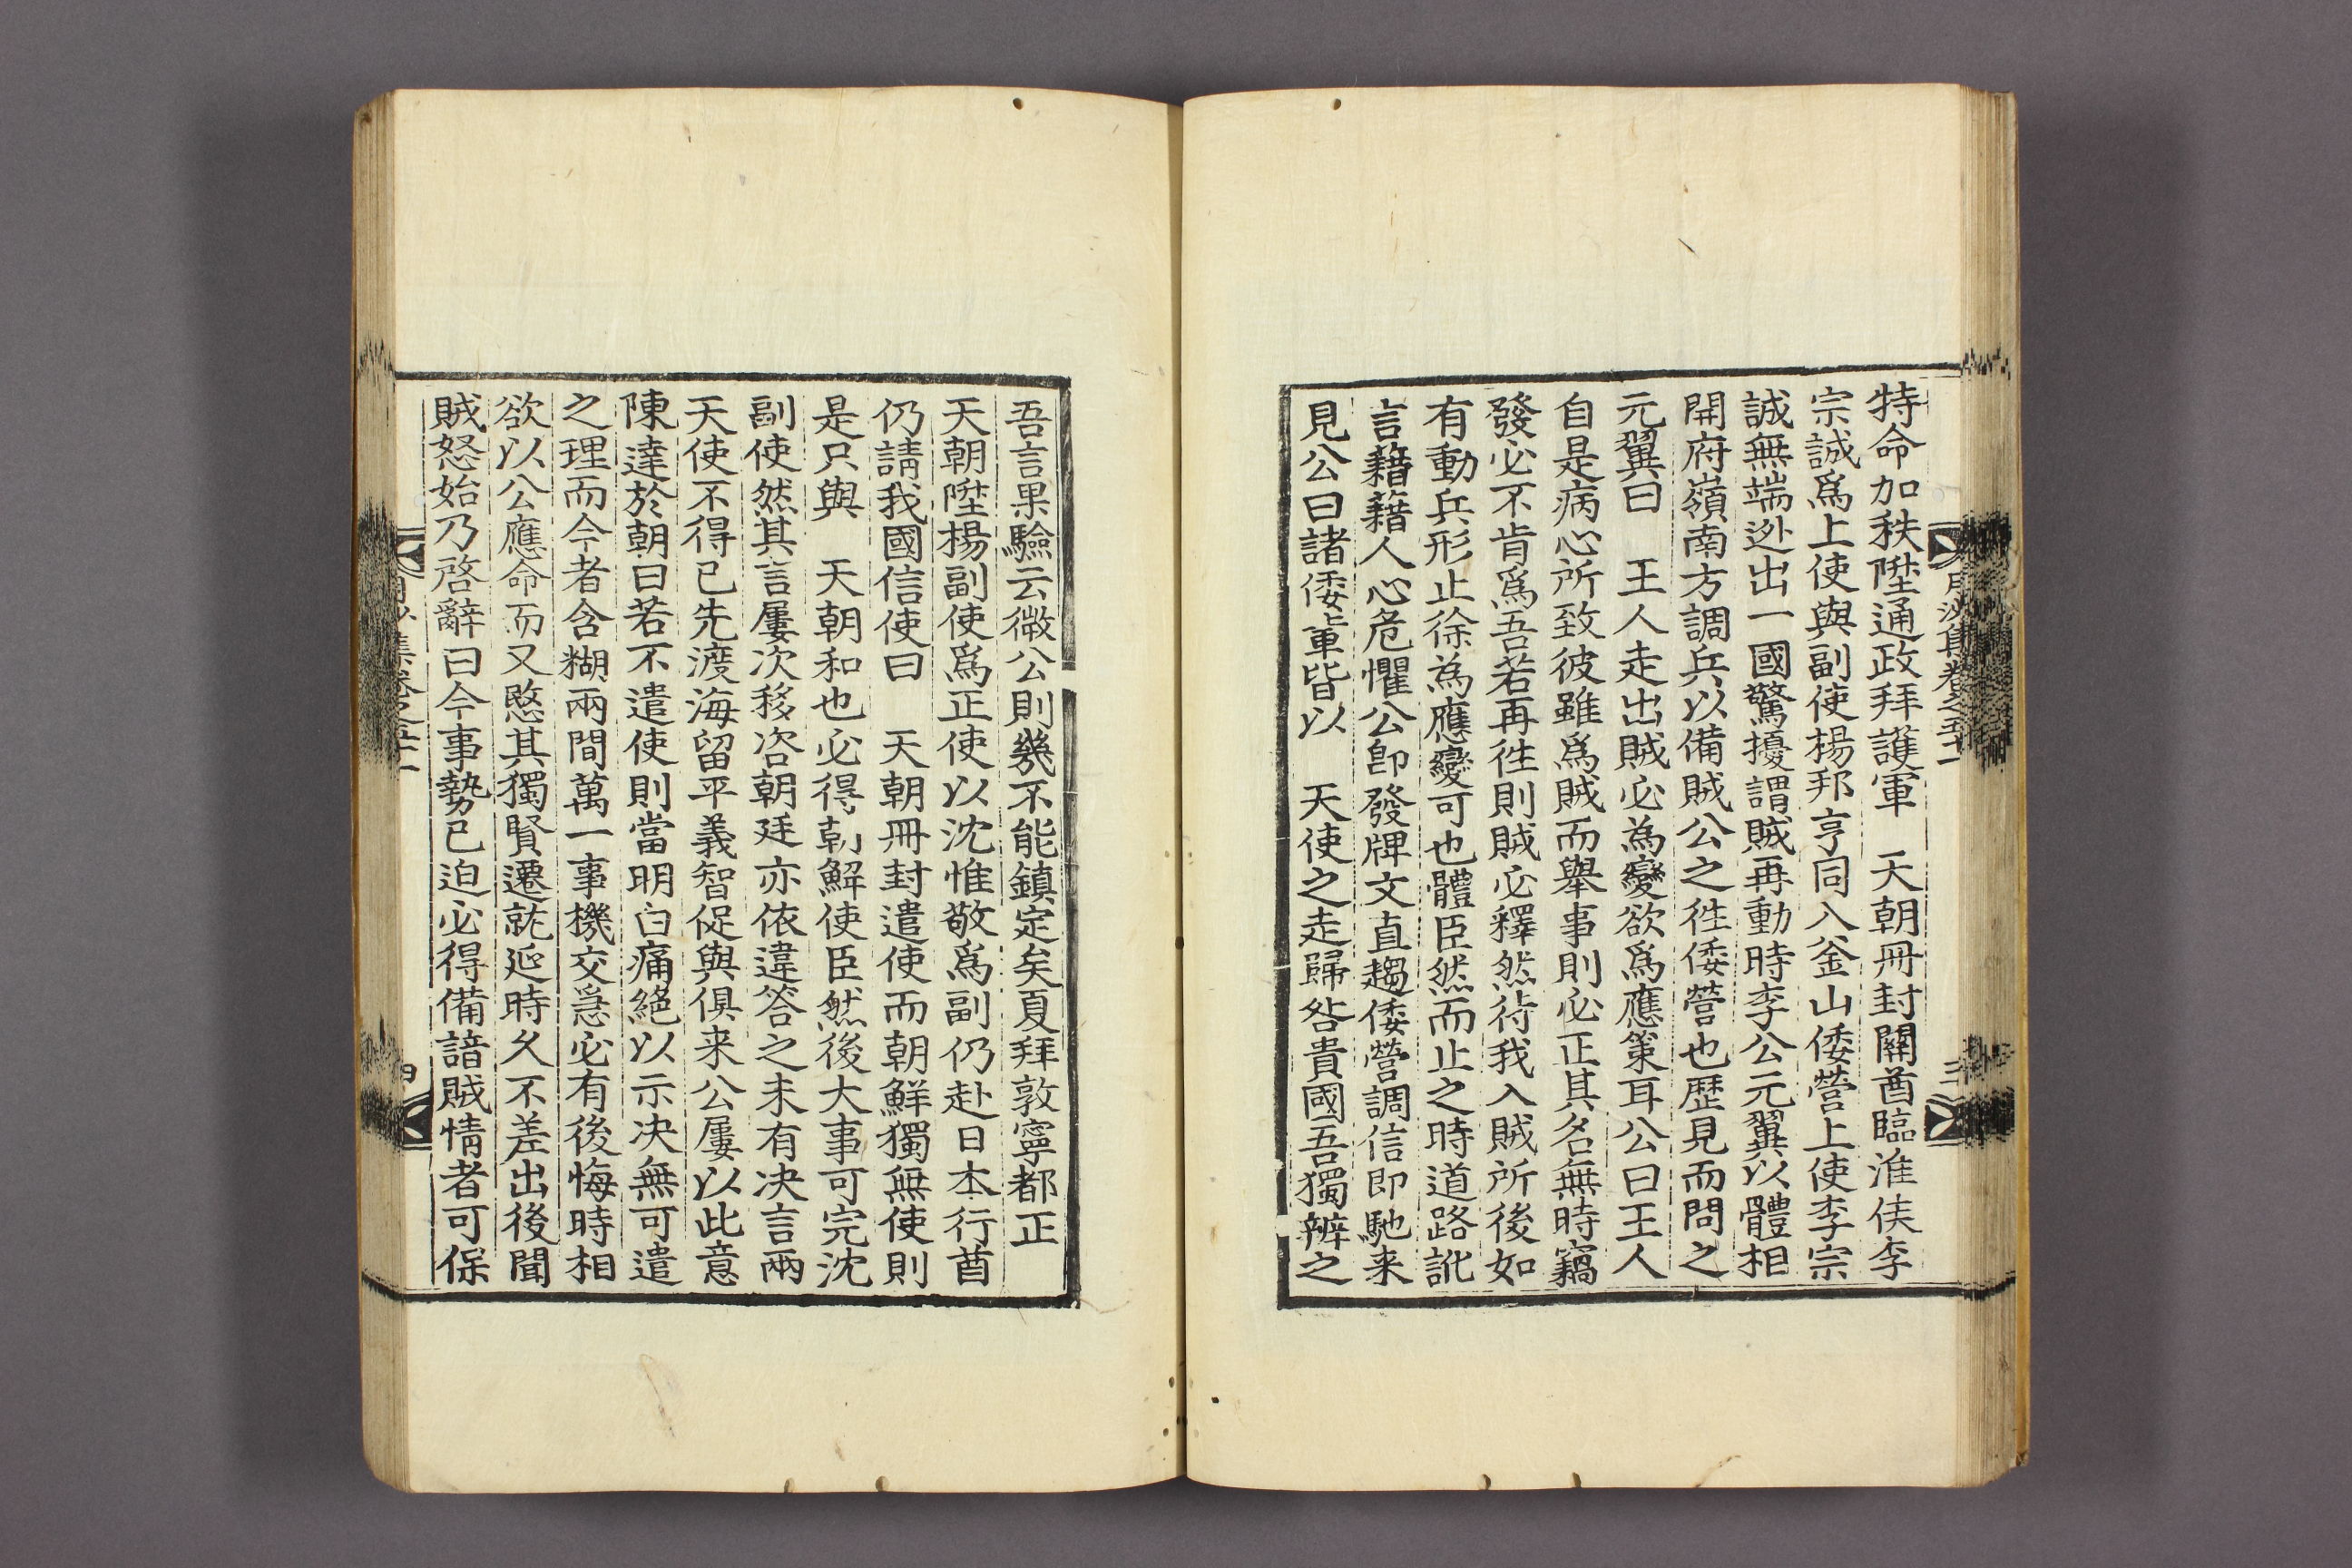 月沙集卷之五十一
三
特命加秩陞通政拜護軍　天朝冊封關酋臨淮侯李
宗誠爲上使與副使楊邦亨同入釜山倭營上使李宗
誠無端迯出一國驚擾謂賊再動時李公元翼以體相
開府嶺南方調兵以備賊公之徃倭營也歷見而問之
元翼曰　王人走出賊必為變欲爲應策耳公曰王人
自是病心所致彼雖爲賊而舉事則必正其名無時竊
發必不肯爲吾若再徃則賊必釋然待我入賊所後如
有動兵形止徐為應變可也體臣然而止之時道路訛
言藉藉人心危懼公卽發牌文直趨倭營調信即馳来
見公曰諸倭軰皆以　天使之走歸咎貴國吾獨辨之
吾言果驗云微公則幾不能鎮定矣夏拜敦寧都正
天朝陞楊副使爲正使以沈惟敬爲副仍赴日本行酋
仍請我國信使曰　天朝冊封遣使而朝鮮獨無使則
是只與　天朝和也必得朝鮮使臣然後大事可完沈
副使然其言屢次移咨朝廷亦依違答之未有决言兩
天使不得已先渡海留平義智促與俱来公屢以此意
陳達於朝曰若不遣使則當明白痛絕以示决無可遣
之理而今者含糊兩間萬一事機交急必有後悔時相
欲以公應命而又愍其獨賢遷就延時久不差出後聞
賊怒始乃啓辭曰今事勢已迫必得備諳賊情者可保
月沙集卷之五十一
四